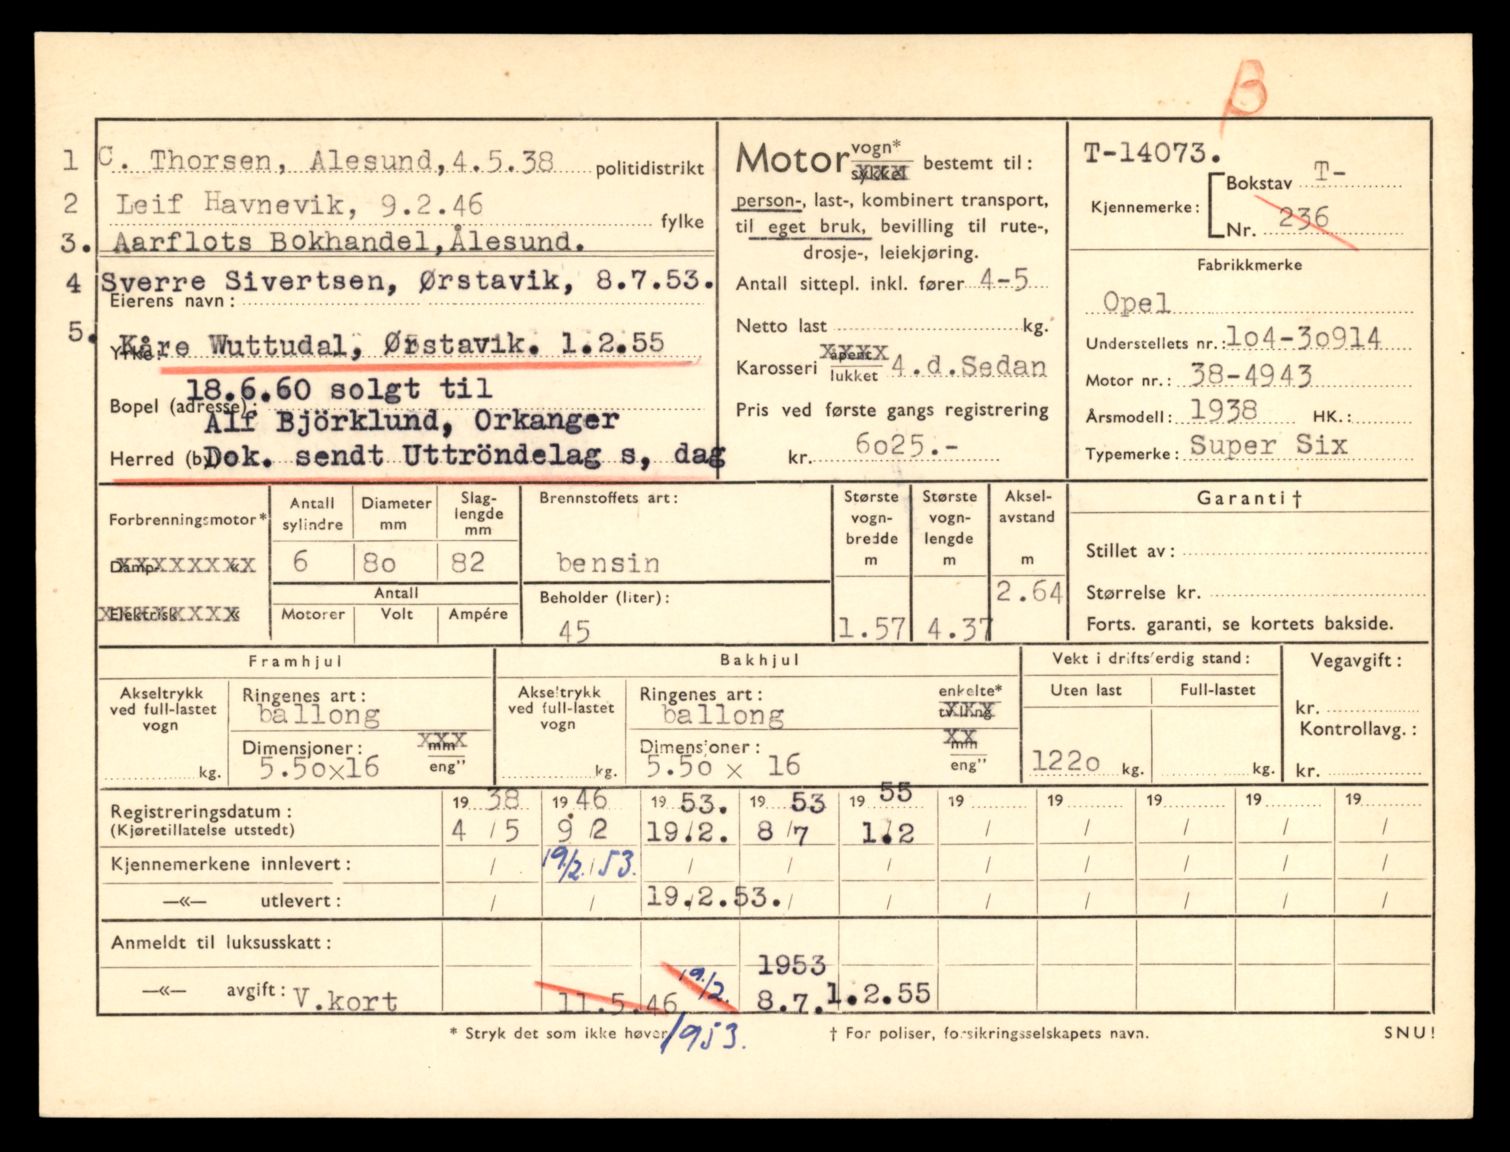 B
1 C. Thorsen, Ålesund, 4.5.38 politidistrikt
2 Leif Havnevik, 9.2.46 fylke
3. Aarflots Bokhandel, Ålesund.
4 Sverre Sivertsen, Ørstavik, 8.7.53.
Eierens navn:
5. Kåre Wuttudal, Ørstavik. 1.2.55
Yrke:
18.6.60 solgt til
Bopel (adresse):
Alf Björklund, Orkanger
Herred (b
Dok. sendt Uttröndelag s, dag
Motor vogn* sykkel bestemt til:
person-, last-, kombinert transport,
til eget bruk, bevilling til rute-,
drosje-, leiekjøring.
Antall sittepl. inkl. fører 4-5
Netto last kg.
Karosseri åpent lukket 4.d.Sedan
Pris ved første gangs registrering
kr. 6025.-
T-14073.
Kjennemerke: Bokstav T-
Nr. 236
Fabrikkmerke
Opel
Understellets nr.: 1o4-3o914
Motor nr.: 38-4943
Årsmodell: 1938 HK.:
Typemerke: Super Six
Forbrenningsmotor*
Damp- « XXXXXXXX
Elektrisk « XXXXXXXX
Antall sylindre
Diameter mm
Slag-lengde mm
6 80 82
Antall
Motorer Volt Ampére
Brennstoffets art:
bensin
Beholder (liter):
45
Største vogn-bredde m
1.57
Største vogn-lengde m
4.37
Aksel-avstand m
2.64
Garanti †
Stillet av:
Størrelse kr.
Forts. garanti, se kortets bakside.
Framhjul
Akseltrykk ved full-lastet vogn
kg.
Ringenes art:
ballong
Dimensjoner: XXX mm eng"
5.50x16
Bakhjul
Akseltrykk ved full-lastet vogn
kg.
Ringenes art: enkelte* tvilling XXX
ballong
Dimensjoner: XX mm eng"
5.50 x 16
Vekt i driftsferdig stand:
Uten last Full-lastet
1220 kg. kg.
Vegavgift:
kr.
Kontrollavg.:
kr.
Registreringsdatum: 19 38 19 46 19 53. 19 53 19 55 19 19 19 19 19
(Kjøretillatelse utstedt) 4 / 5 9 / 2 19./2. 8 / 7 1./2 / / / / /
Kjennemerkene innlevert: / 19/2. / 53. / / / / / / / /
—«— utlevert: / / 19./2.53. / / / / / / /
Anmeldt til luksusskatt:
1953
—«— avgift: V.kort 11.5.46 19./2. 1953. 8.7. 1.2.55
* Stryk det som ikke høver † For poliser, forsikringsselskapets navn. SNU!